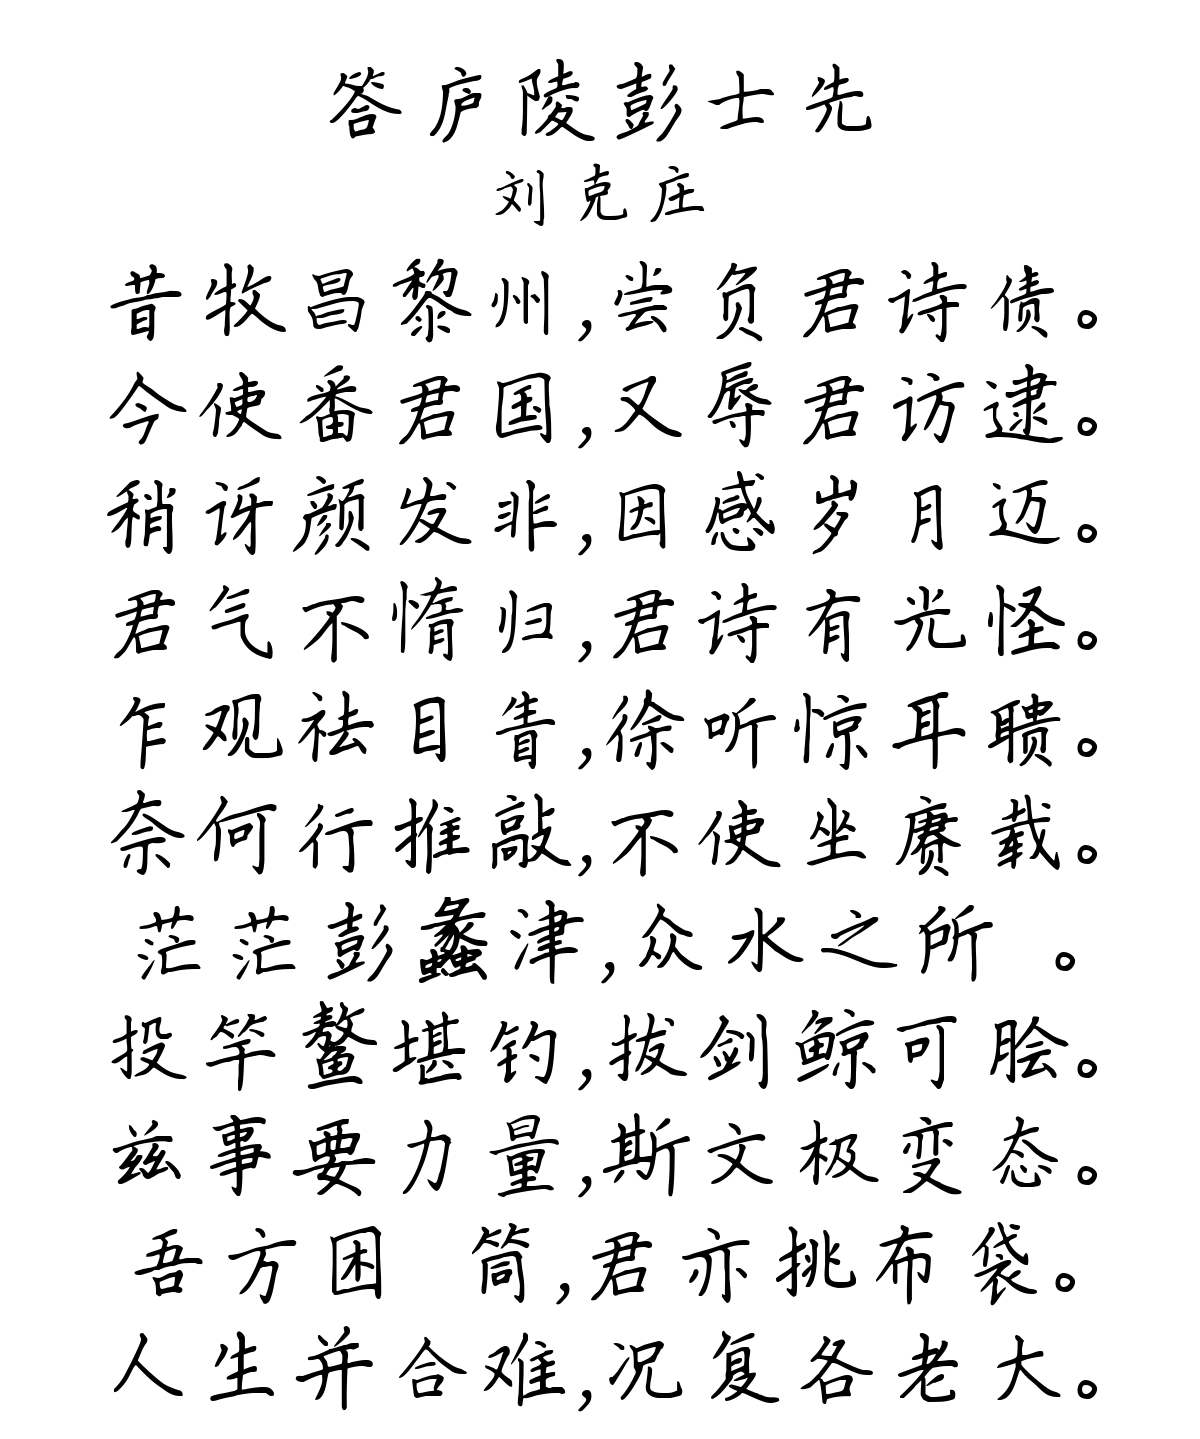 答庐陵彭士先
刘克庄
昔牧昌黎州,尝负君诗债。
今使番君国,又辱君访逮。
稍讶颜发非,因感岁月迈。
君气不惰归,君诗有光怪。
乍观祛目眚,徐听惊耳聩。
奈何行推敲,不使坐赓载。
茫茫彭蠡津,众水之所 。
投竿鳌堪钓,拔剑鲸可脍。
兹事要力量,斯文极变态。
吾方困 筒,君亦挑布袋。
人生并合难,况复各老大。